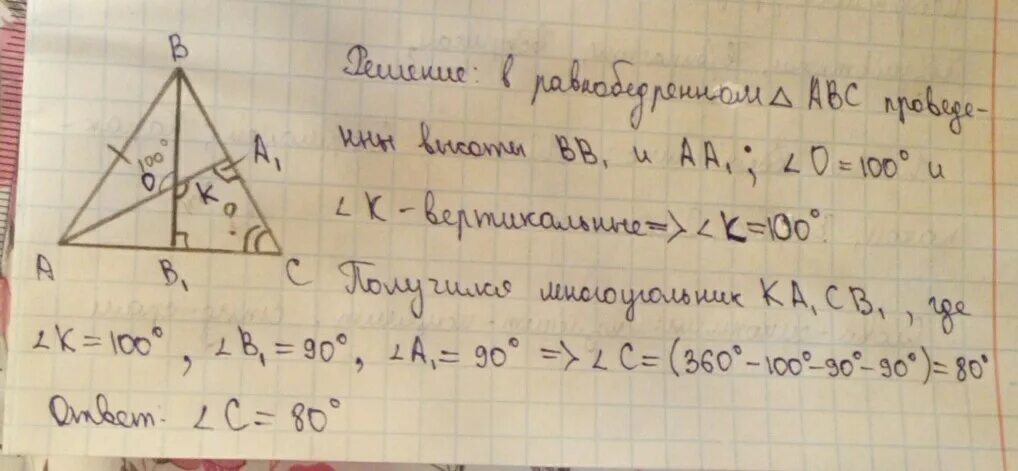 B
100°
O
K
A₁
?
A
B₁
C
Решение: в равнобедренном △ ABC проведе-
нны высоты BB₁ и AA₁; ∠O=100° и
∠K - вертикальные=> ∠K=100°.
Получился многоугольник KA₁CB₁, где
∠K=100°, ∠B₁=90°, ∠A₁=90° => ∠C=(360°-100°-90°-90°)=80°
Ответ: ∠C=80°